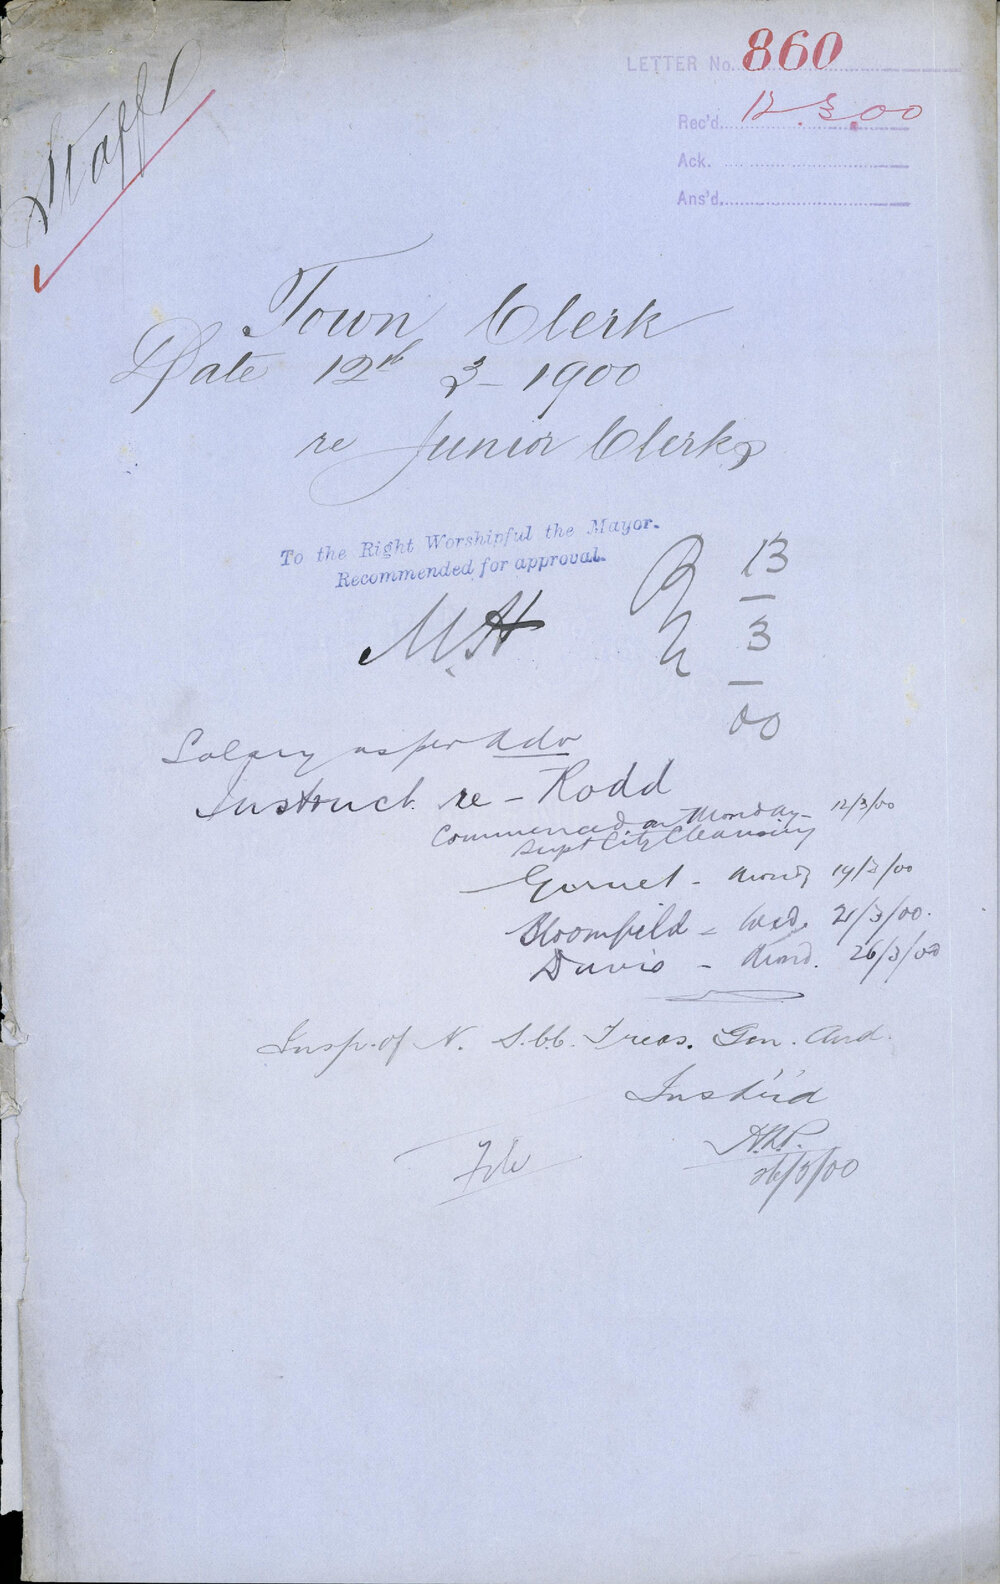 Staff
LETTER No. 860
Rec'd. 12.3.00
Ack.
Ans'd.
Town Clerk
Date 12th 3-1900
re Junior Clerks
To the Right Worshipful the Mayor.
Recommended for approval.
M.H
13
3
00
Salary as per Adv
Instruct. re - Rodd
Commenced on Monday - 12/3/00
Supt City Cleansing
Gurnet - Mondy 19/3/00
Bloomfield - Wed. 21/3/00.
Davis - Mond. 26/3/00
Insp. of N. S.C.C. Treas. Gen. Aud.
Inst'd
26/3/00
File